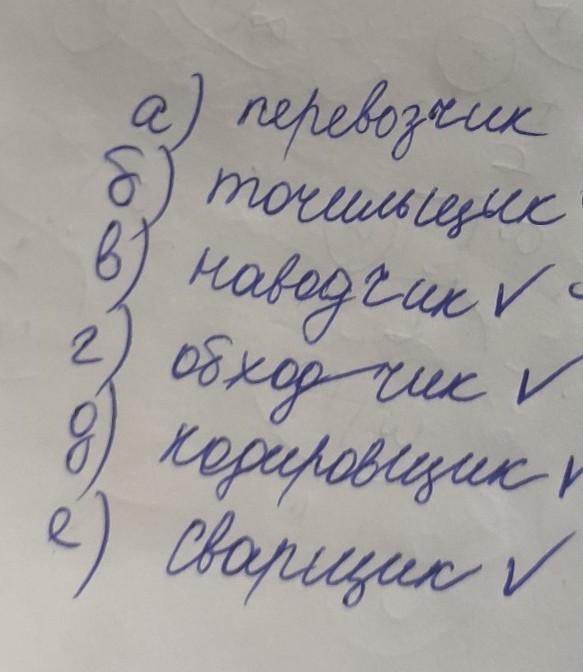 а) перевозчик
б) точильщик
в) наводчик ✓
г) обходчик ✓
д) кодировщик ✓
е) сварщик ✓